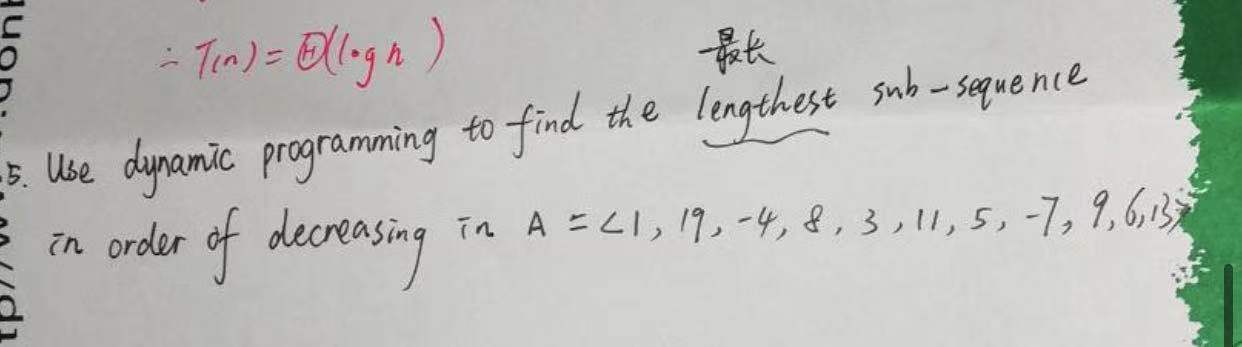 ∴ T(n) = Θ(log n)
最长
5. Use dynamic programming to find the lengthest sub-sequence
in order of decreasing in A = <1, 19, -4, 8, 3, 11, 5, -7, 9, 6, 13>